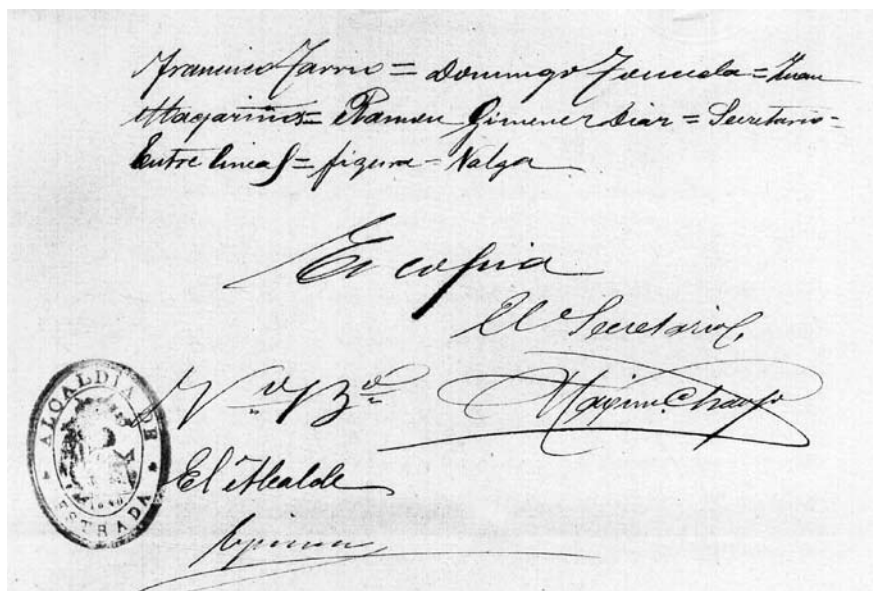 Francisco Tarrio = Domingo Fonsela = Juan
Magariños = Ramon Gimenez Diaz = Secretario =
Entre lineas = figura = Valga
Es copia
El Secretario,
Vº Bº
El Alcalde
ALCALDIA DE ESTRADA